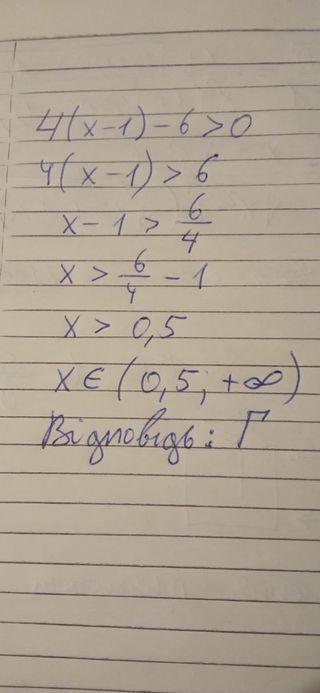 4(x-1)-6>0
4(x-1)>6
x-1>6/4
x>6/4-1
x>0,5
x∈(0,5;+∞)
Відповідь: Г